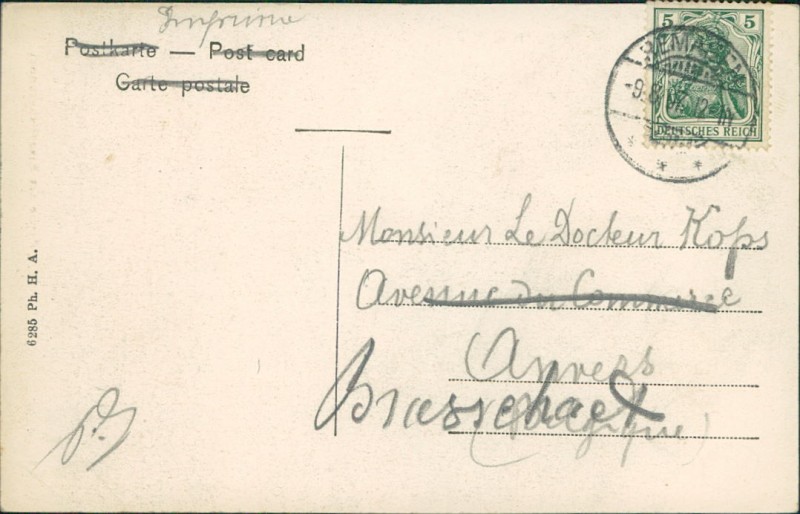 Imprimé
Postkarte — Post card
Carte postale
5 5
DEUTSCHES REICH
REMAGEN
Monsieur Le Docteur Kops
Avenue du Commerce
Anvers
Brasschaet
(Belgique)
6285 Ph. H. A.